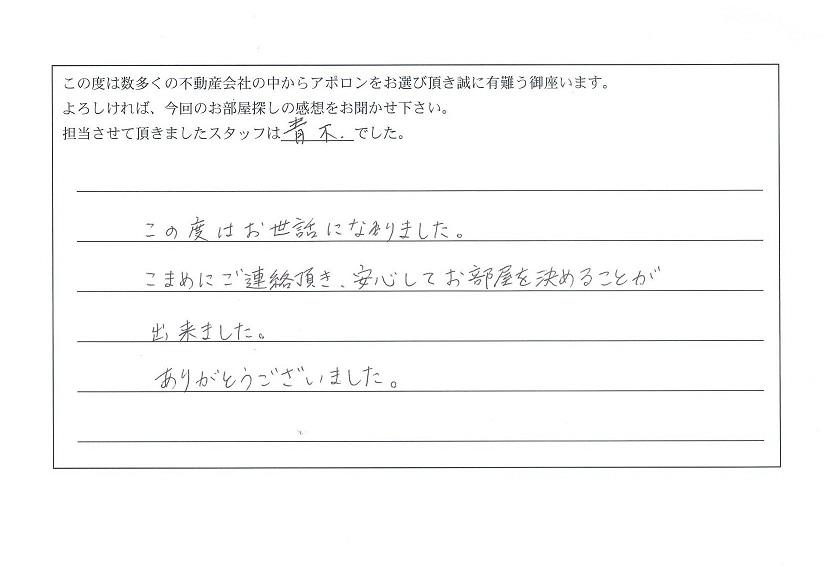 この度は数多くの不動産会社の中からアポロンをお選び頂き誠に有難う御座います。
よろしければ、今回のお部屋探しの感想をお聞かせ下さい。
担当させて頂きましたスタッフは青木.でした。
この度はお世話になりました。
こまめにご連絡頂き、安心してお部屋を決めることが
出来ました。
ありがとうございました。